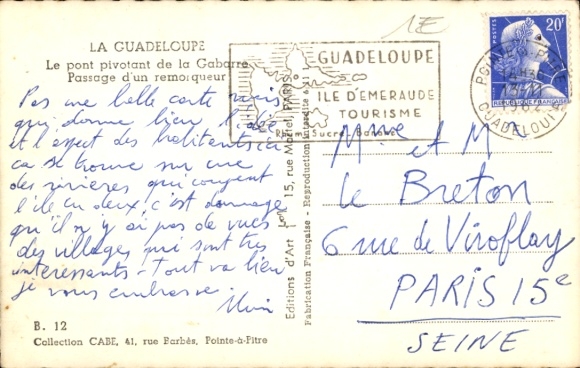 1E
LA GUADELOUPE
Le pont pivotant de la Gabarre
Passage d'un remorqueur
Pas une belle carte mais
qui donne bien l'idée
et l'aspect des habitants ici
ça se trouve sur une
des rivières qui coupent
l'île en deux, c'est dommage
qu'il n'y ai pas de vues
des villages qui sont très
intéressants - Tout va bien
je vous embrasse.
B. 12
Collection CABE, 41, rue Barbès, Pointe-à-Pitre
Editions d'Art 15, rue Martel, PARIS
Fabrication Française - Reproduction interdite
GUADELOUPE
ILE D'EMERAUDE
TOURISME
Rhum Sucre
POSTES
20F
REPUBLIQUE FRANÇAISE
GUADELOUPE
Mme et M
Le Breton
6 rue de Viroflay
PARIS 15e
SEINE